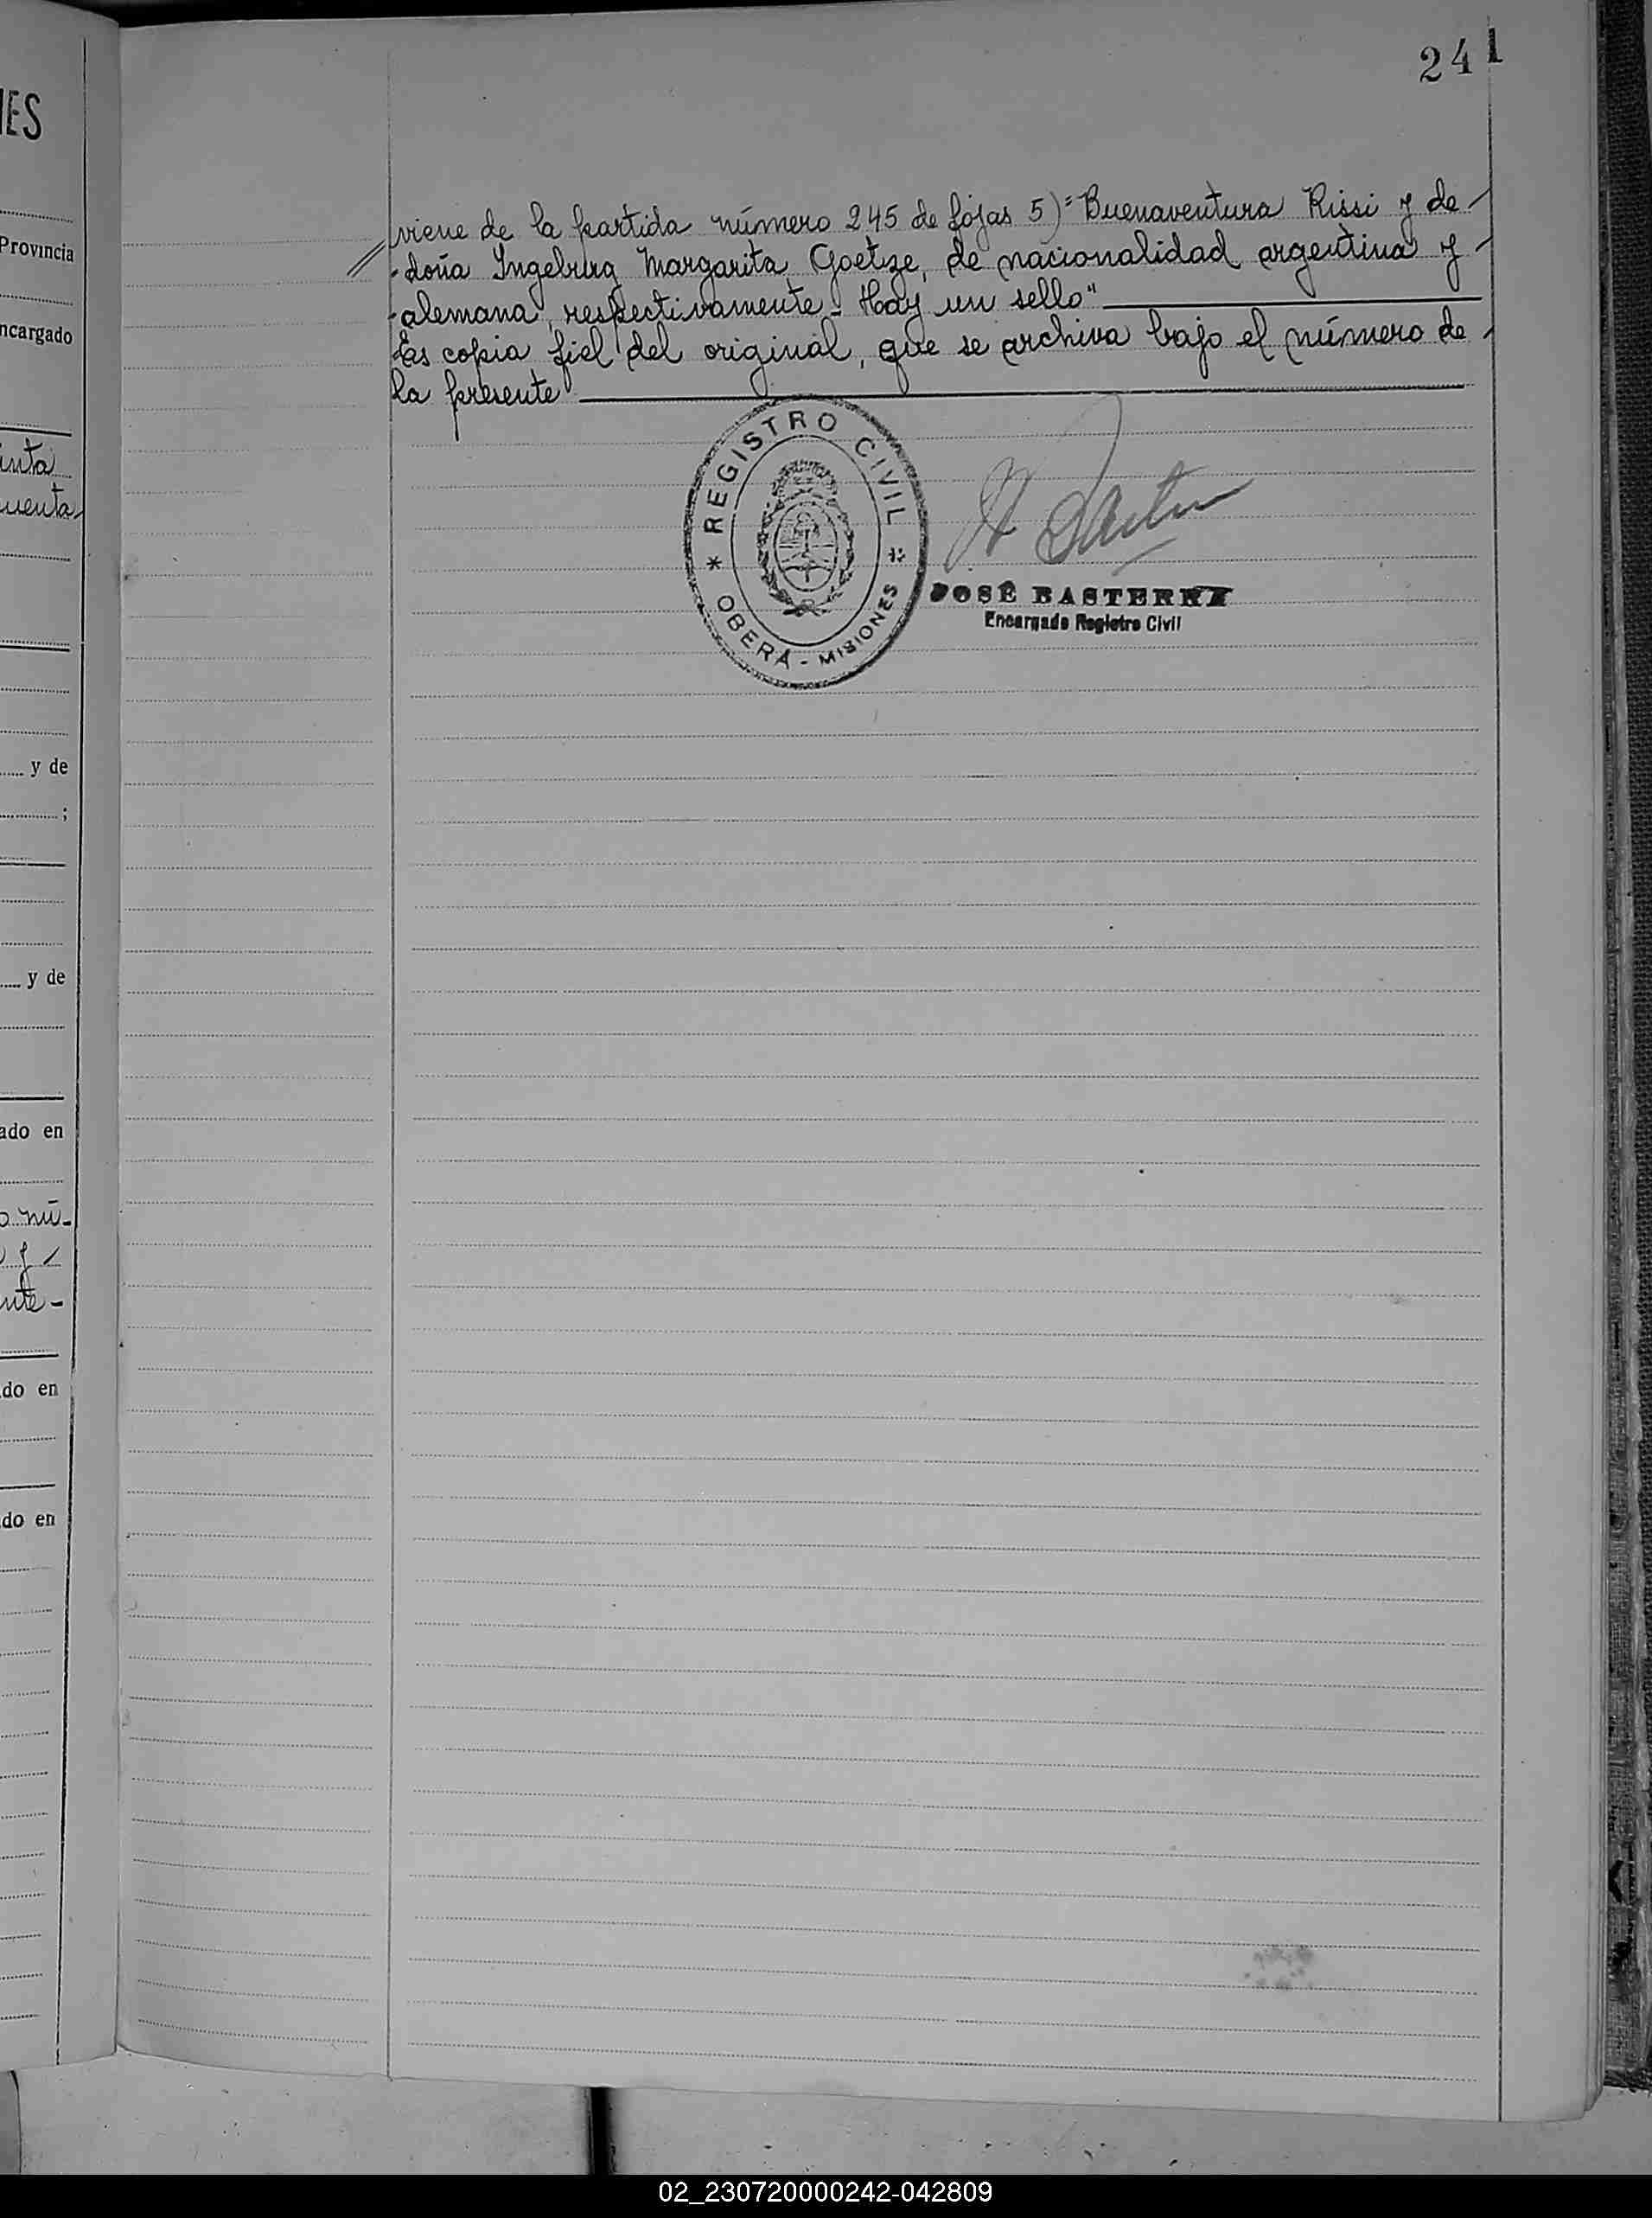 241
viene de la partida número 245 de fojas 5) "Buenaventura Rissi y de -
- doña Ingeburg Margarita Goetze, de nacionalidad argentina y -
- alemana, respectivamente - Hay un sello"
Es copia fiel del original, que se archiva bajo el número de -
la presente
REGISTRO CIVIL
OBERÁ - MISIONES
JOSÉ BASTERRA
Encargado Registro Civil
Provincia
ncargado
uenta
y de
;
y de
ado en
o nú-
y
nte -
do en
do en
02_230720000242-042809